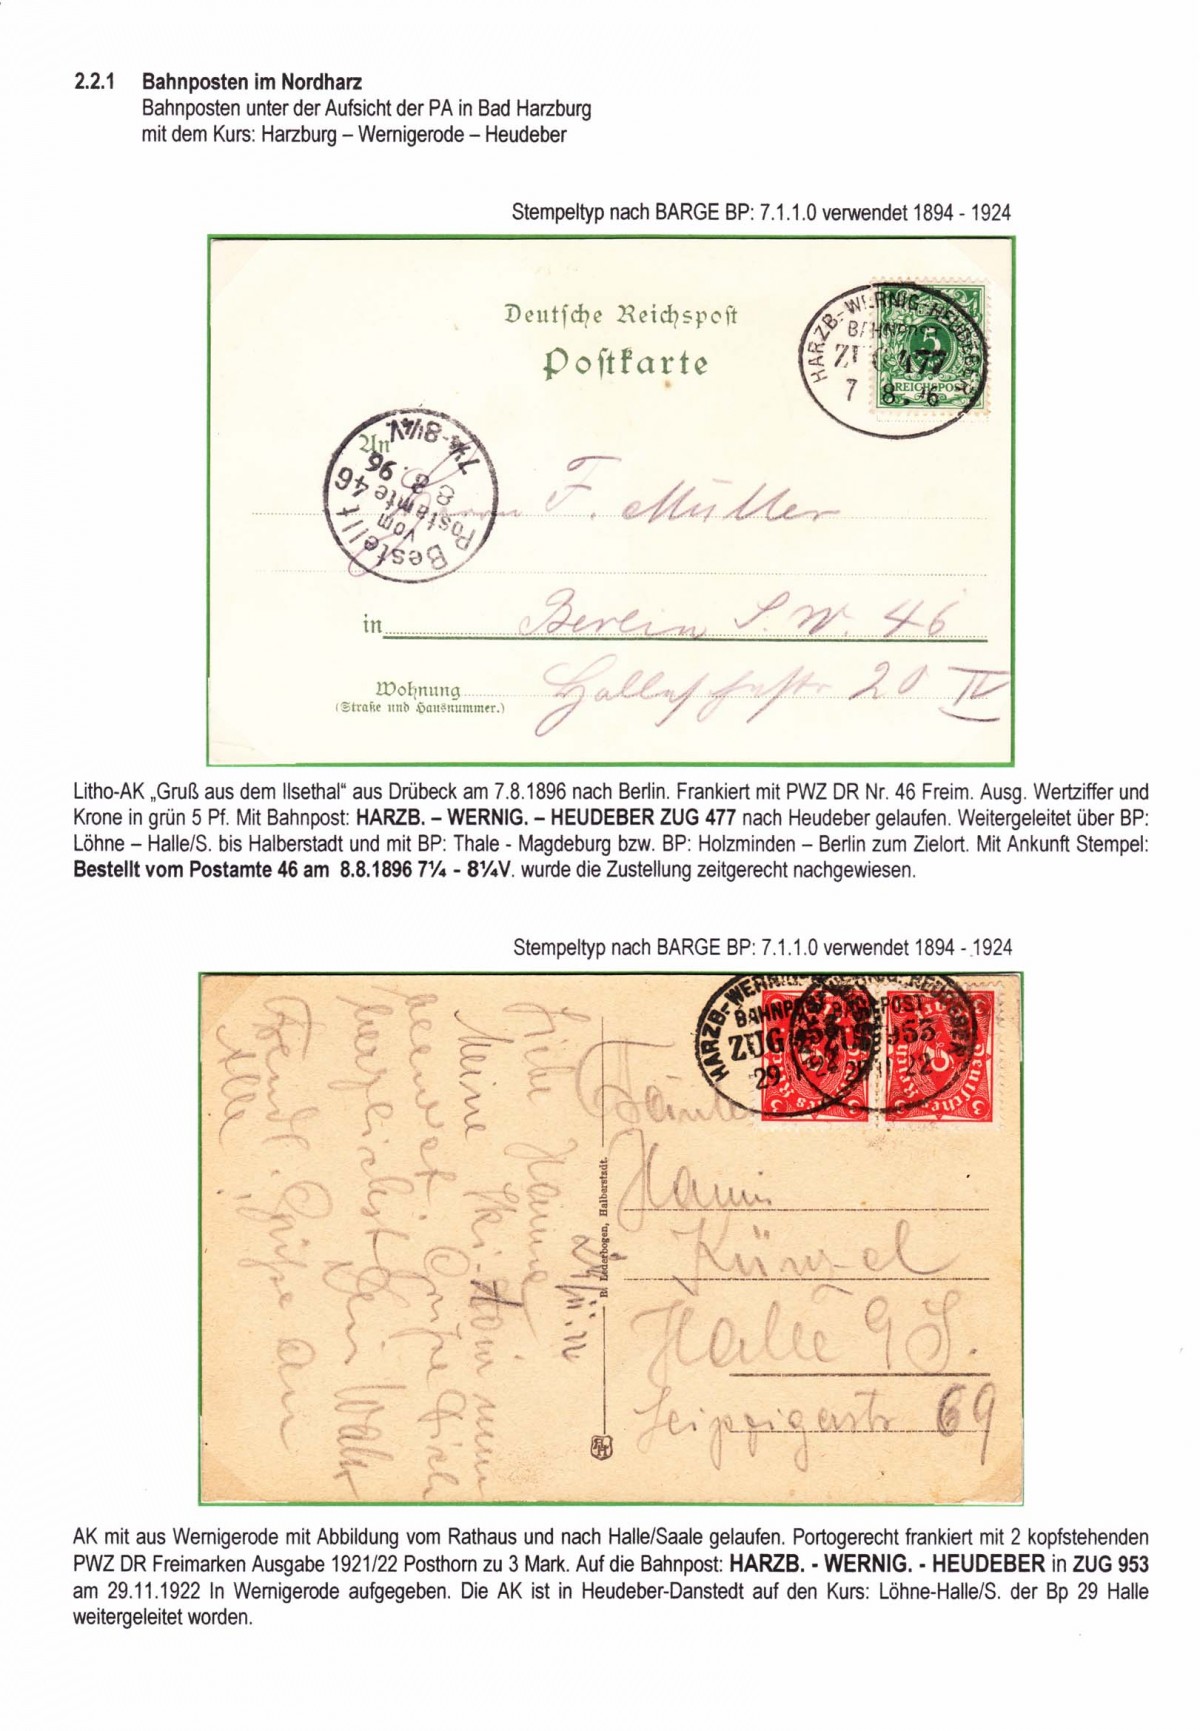 2.2.1 Bahnposten im Nordharz
Bahnposten unter der Aufsicht der PA in Bad Harzburg
mit dem Kurs: Harzburg – Wernigerode – Heudeber
Stempeltyp nach BARGE BP: 7.1.1.0 verwendet 1894 - 1924
Deutsche Reichspost
Postkarte
HARZB.-WERNIG.-HEUDEBER
BAHNPOST
ZUG 477
7 8. 96
5
REICHSPOST
An
Bestellt
vom
Postamte 46
8 8. 96
7¼-8¼V.
Herrn F. Müller
in Berlin S.W. 46
Wohnung
(Straße und Hausnummer.)
20 IV
Litho-AK „Gruß aus dem Ilsethal“ aus Drübeck am 7.8.1896 nach Berlin. Frankiert mit PWZ DR Nr. 46 Freim. Ausg. Wertziffer und
Krone in grün 5 Pf. Mit Bahnpost: HARZB. – WERNIG. – HEUDEBER ZUG 477 nach Heudeber gelaufen. Weitergeleitet über BP:
Löhne – Halle/S. bis Halberstadt und mit BP: Thale - Magdeburg bzw. BP: Holzminden – Berlin zum Zielort. Mit Ankunft Stempel:
Bestellt vom Postamte 46 am 8.8.1896 7¼ - 8¼V. wurde die Zustellung zeitgerecht nachgewiesen.
Stempeltyp nach BARGE BP: 7.1.1.0 verwendet 1894 - 1924
HARZB.-WERNIG.-HEUDEBER
BAHNPOST
ZUG 953
29 11 22
Deutsches Reich
3 3
Hanni
Künzel
Halle a/S.
Leipzigerstr 69
B. Lederbogen, Halberstadt.
Liebe Hanne
Meine
herzlichst
AK mit aus Wernigerode mit Abbildung vom Rathaus und nach Halle/Saale gelaufen. Portogerecht frankiert mit 2 kopfstehenden
PWZ DR Freimarken Ausgabe 1921/22 Posthorn zu 3 Mark. Auf die Bahnpost: HARZB. - WERNIG. - HEUDEBER in ZUG 953
am 29.11.1922 In Wernigerode aufgegeben. Die AK ist in Heudeber-Danstedt auf den Kurs: Löhne-Halle/S. der Bp 29 Halle
weitergeleitet worden.